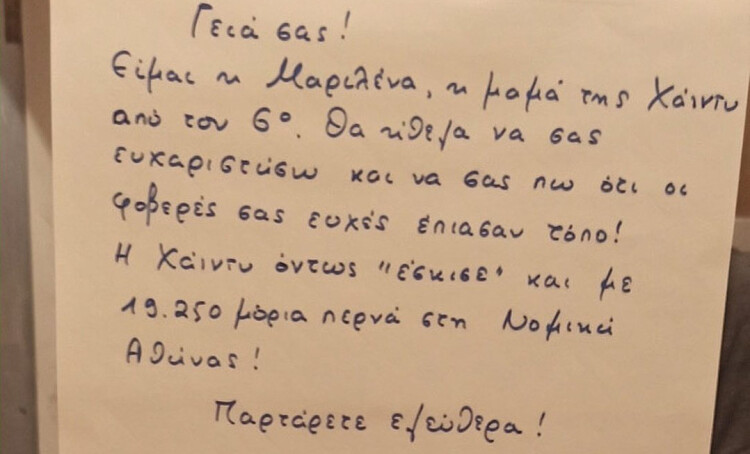 Γειά σας!
Είμαι η Μαριλένα, η μαμά της Χάιντυ
από τον 6º. Θα ήθελα να σας
ευχαριστήσω και να σας πω ότι οι
φοβερές σας ευχές έπιασαν τόπο!
Η Χάιντυ όντως "έσκισε" και με
19.250 μόρια περνά στη Νομική
Αθήνας!
Παρτάρετε ελεύθερα!